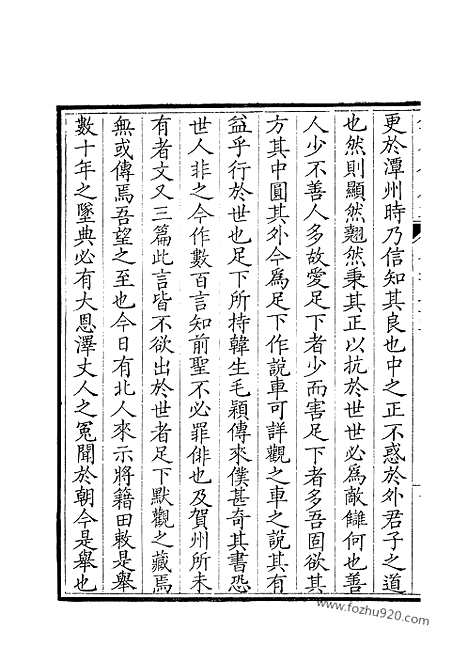 更於潭州時乃信知其良也中之正不惑於外君子之道
也然則顯然翹然秉其正以抗於世世必為敵讎何也善
人少不善人多故愛足下者少而害足下者多吾固欲其
方其中圓其外今為足下作說車可詳觀之車之說其有
益乎行於世也足下所持韓生毛穎傳來僕甚奇其書恐
世人非之今作數百言知前聖不必罪俳也及賀州所未
有者文又三篇此言皆不欲出於世者足下默觀之藏焉
無或傳焉吾望之至也今日有北人來示將籍田敕是舉
數十年之墜典必有大恩澤丈人之冤聞於朝今是舉也
www.fozhu920.com